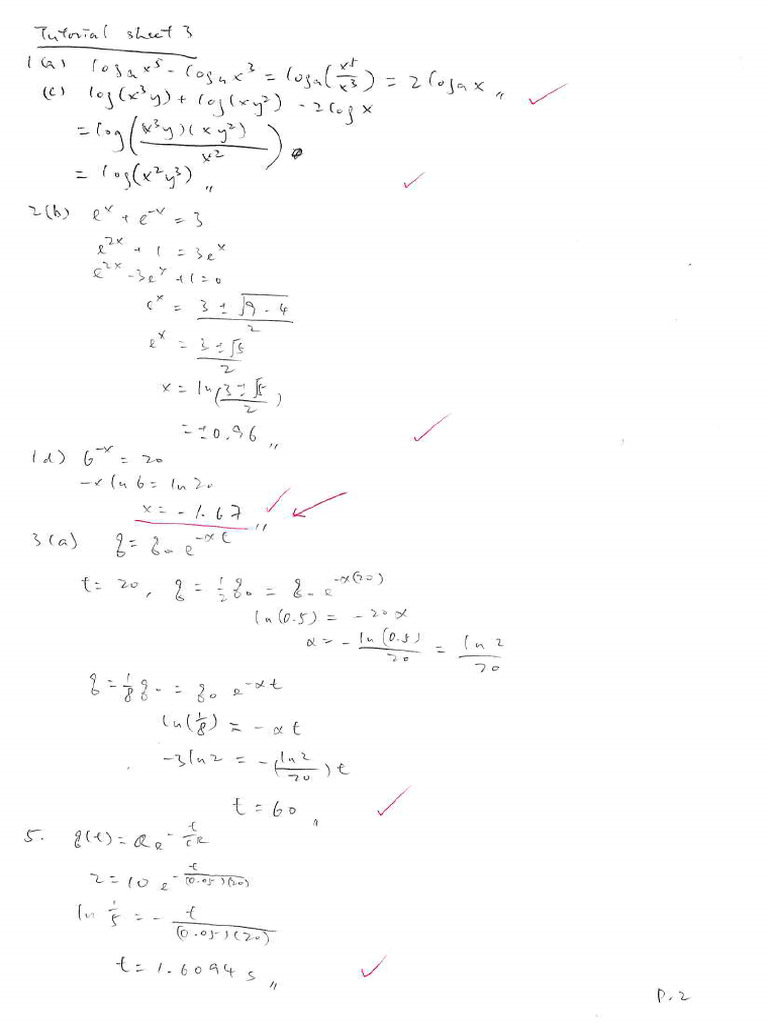 Tutorial sheet 3
1(a) logₐx⁵ - logₐx³ = logₐ(x⁵/x³) = 2logₐx,,
(c) log(x³y) + log(xy²) - 2logx
= log((x³y)(xy²)/x²)
= log(x²y³),,
2(b) eˣ + e⁻ˣ = 3
e²ˣ + 1 = 3eˣ
e²ˣ - 3eˣ + 1 = 0
eˣ = (3 ± √(9-4))/2
eˣ = (3 ± √5)/2
x = ln((3 ± √5)/2)
= ±0.96,,
(d) 6⁻ˣ = 20
-x ln6 = ln20
x = -1.67,,
3(a) q = q₀e^(-αt)
t = 20, q = ½q₀ = q₀e^(-α(20))
ln(0.5) = -20α
α = -ln(0.5)/20 = ln2/20
q = ⅛q₀ = q₀e^(-αt)
ln(⅛) = -αt
-3ln2 = -(ln2/20)t
t = 60,,
5. q(t) = Qe^(-t/CR)
2 = 10e^(-t/(0.05)(20))
ln ⅕ = -t/((0.05)(20))
t = 1.6094s,,
P.2